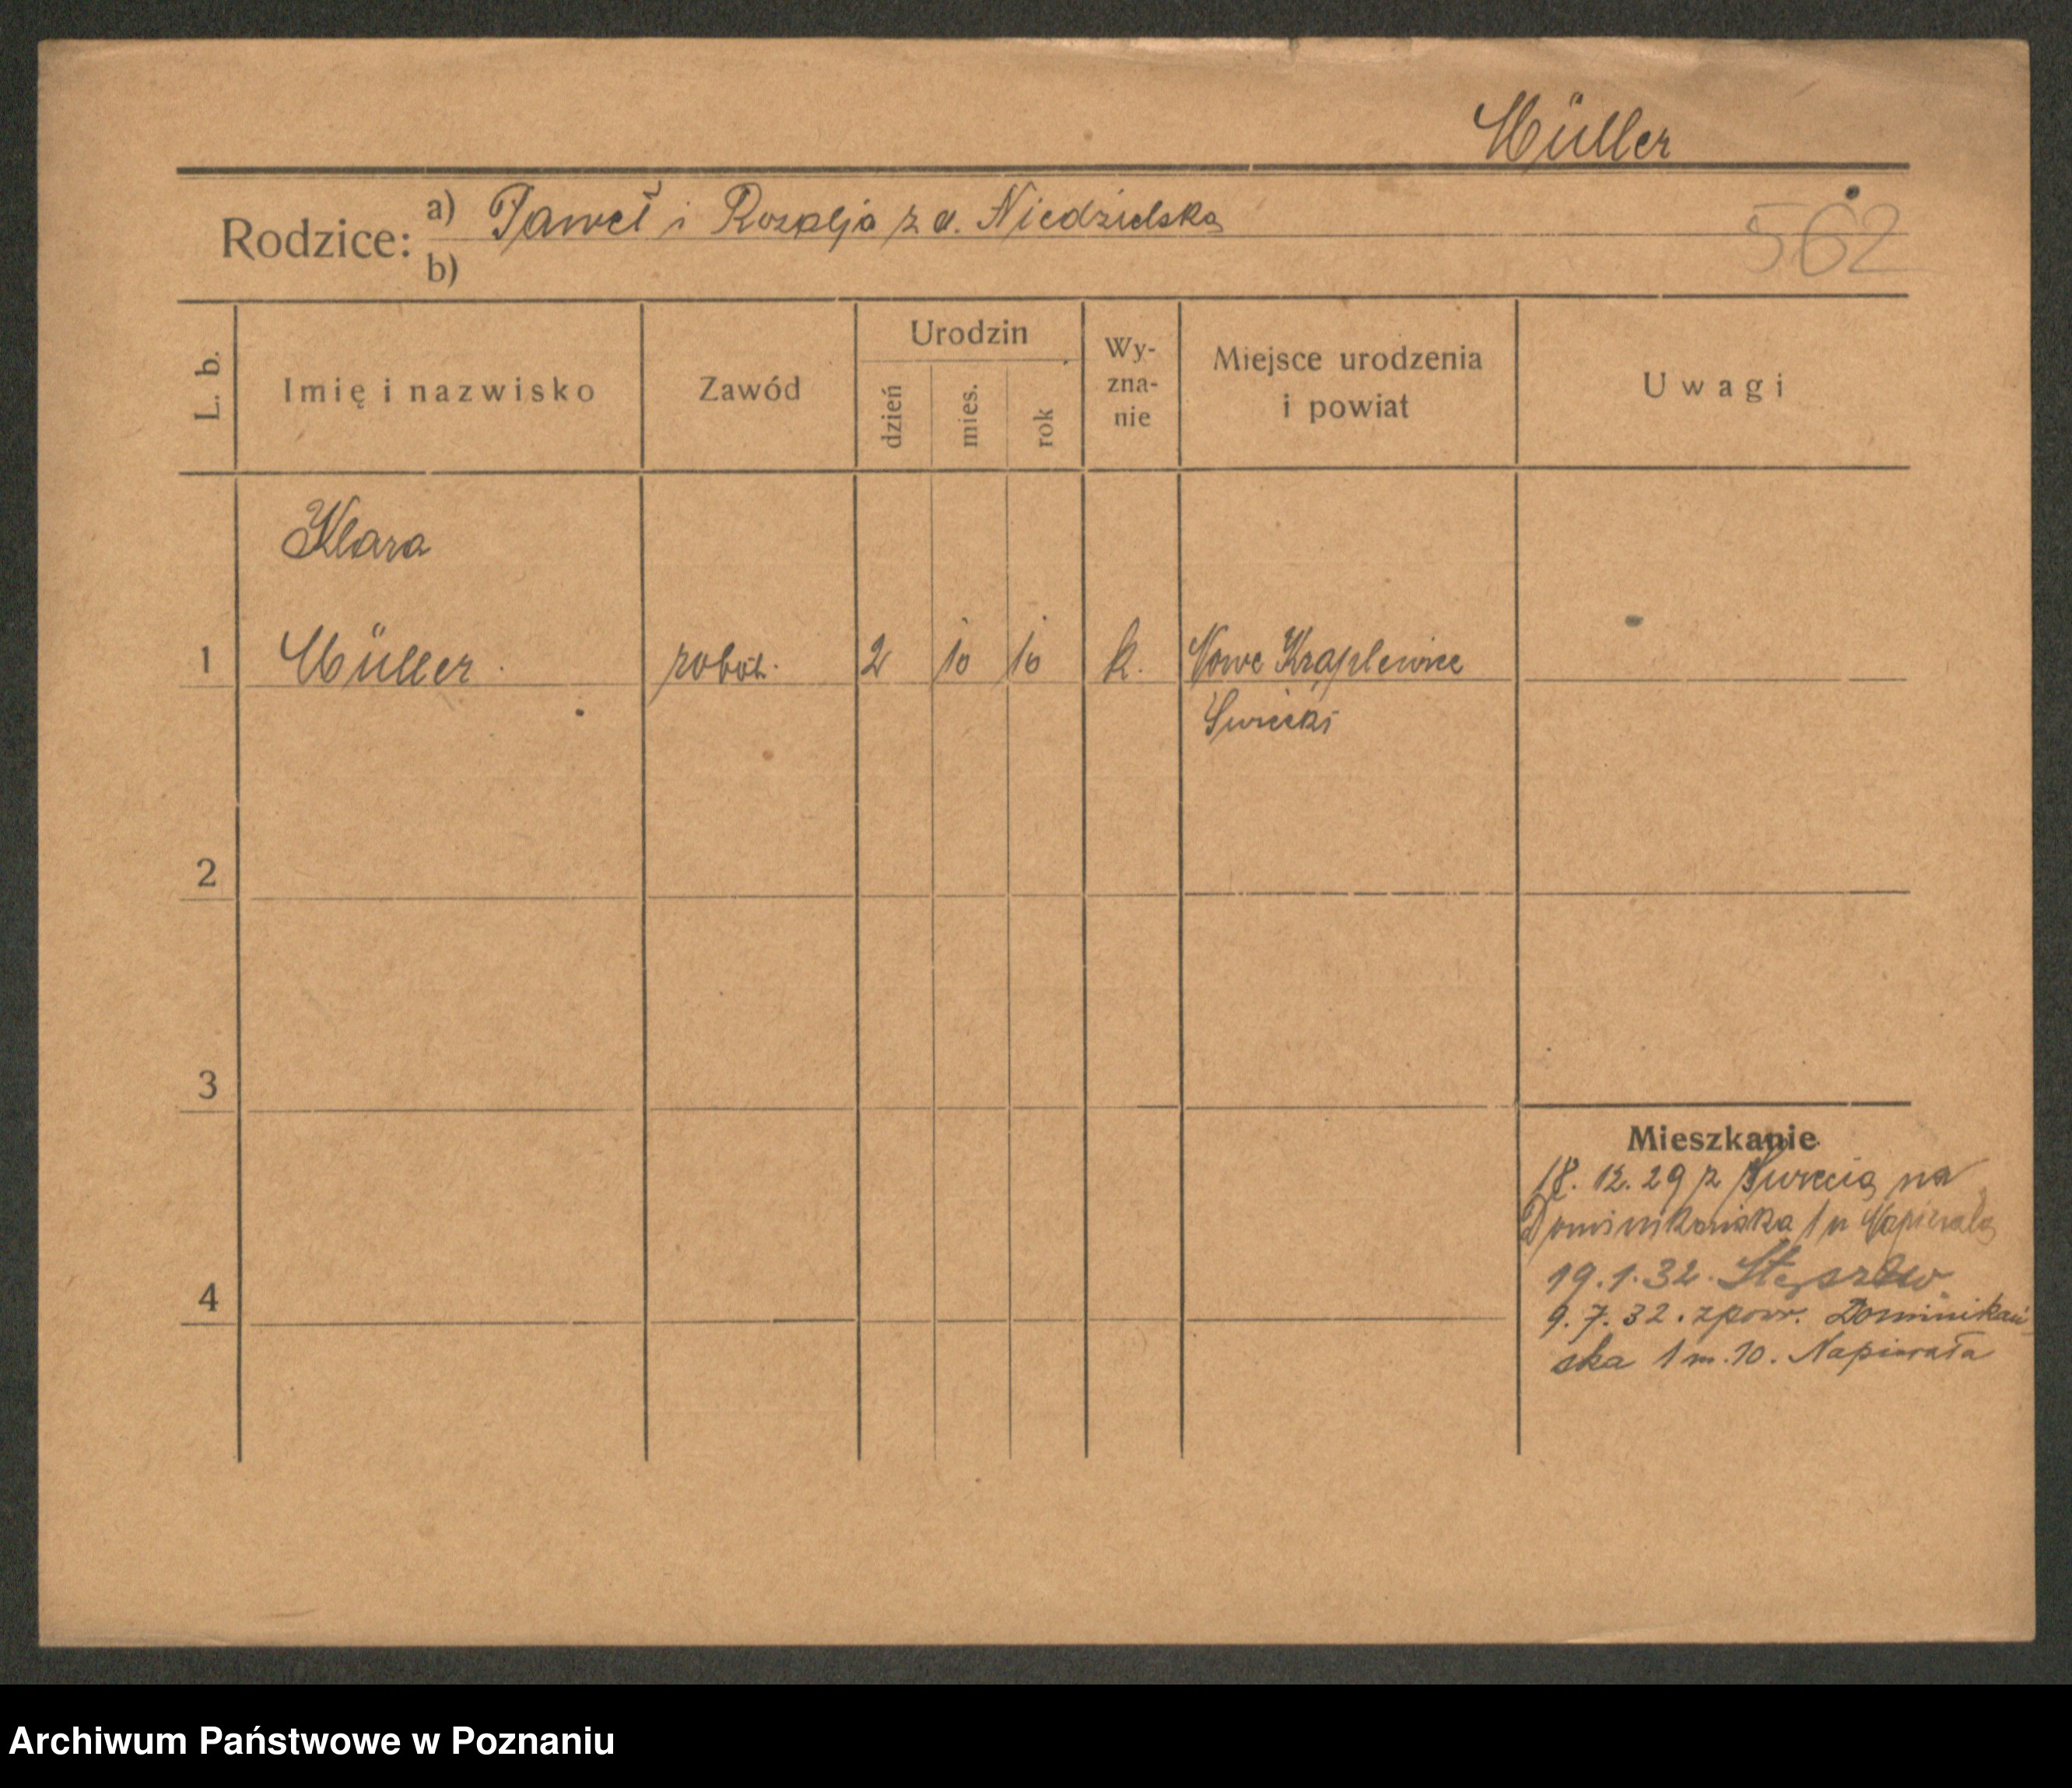 Müller
Rodzice: a) Paweł i Rozalja z d. Niedzielska
b)
562
L. b.
Imię i nazwisko
Zawód
Urodzin
dzień
mies.
rok
Wy-
zna-
nie
Miejsce urodzenia
i powiat
Uwagi
Klara
1 Müller. robot. 2 10 10 k. Nowe Krąplewice
Świecki
2
3
Mieszkanie
18.12.29 z Świecia na
Dominikańska 1 u Napierała
19.1.32. Stęszew
4
9.7.32. zpow. Dominikań-
ska 1 m. 10. Napierała
Archiwum Państwowe w Poznaniu